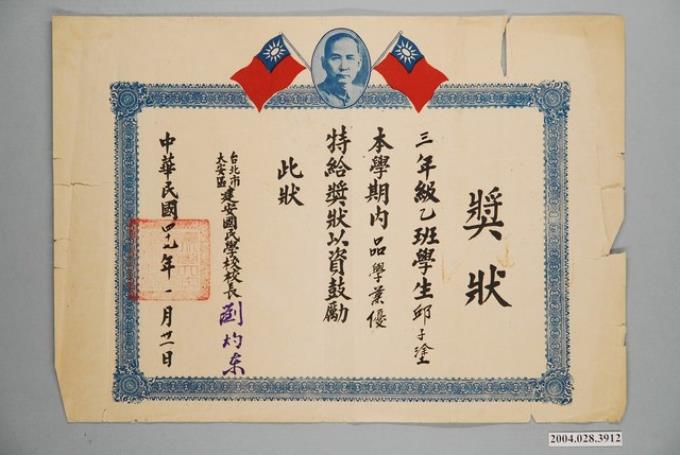 獎狀
三年級乙班學生邱子塗
本學期內品學業優
特給獎狀以資鼓勵
此狀
台北市
大安區
建安國民學校校長劉灼東
中華民國四十九年一月廿一日
2004.028.3912